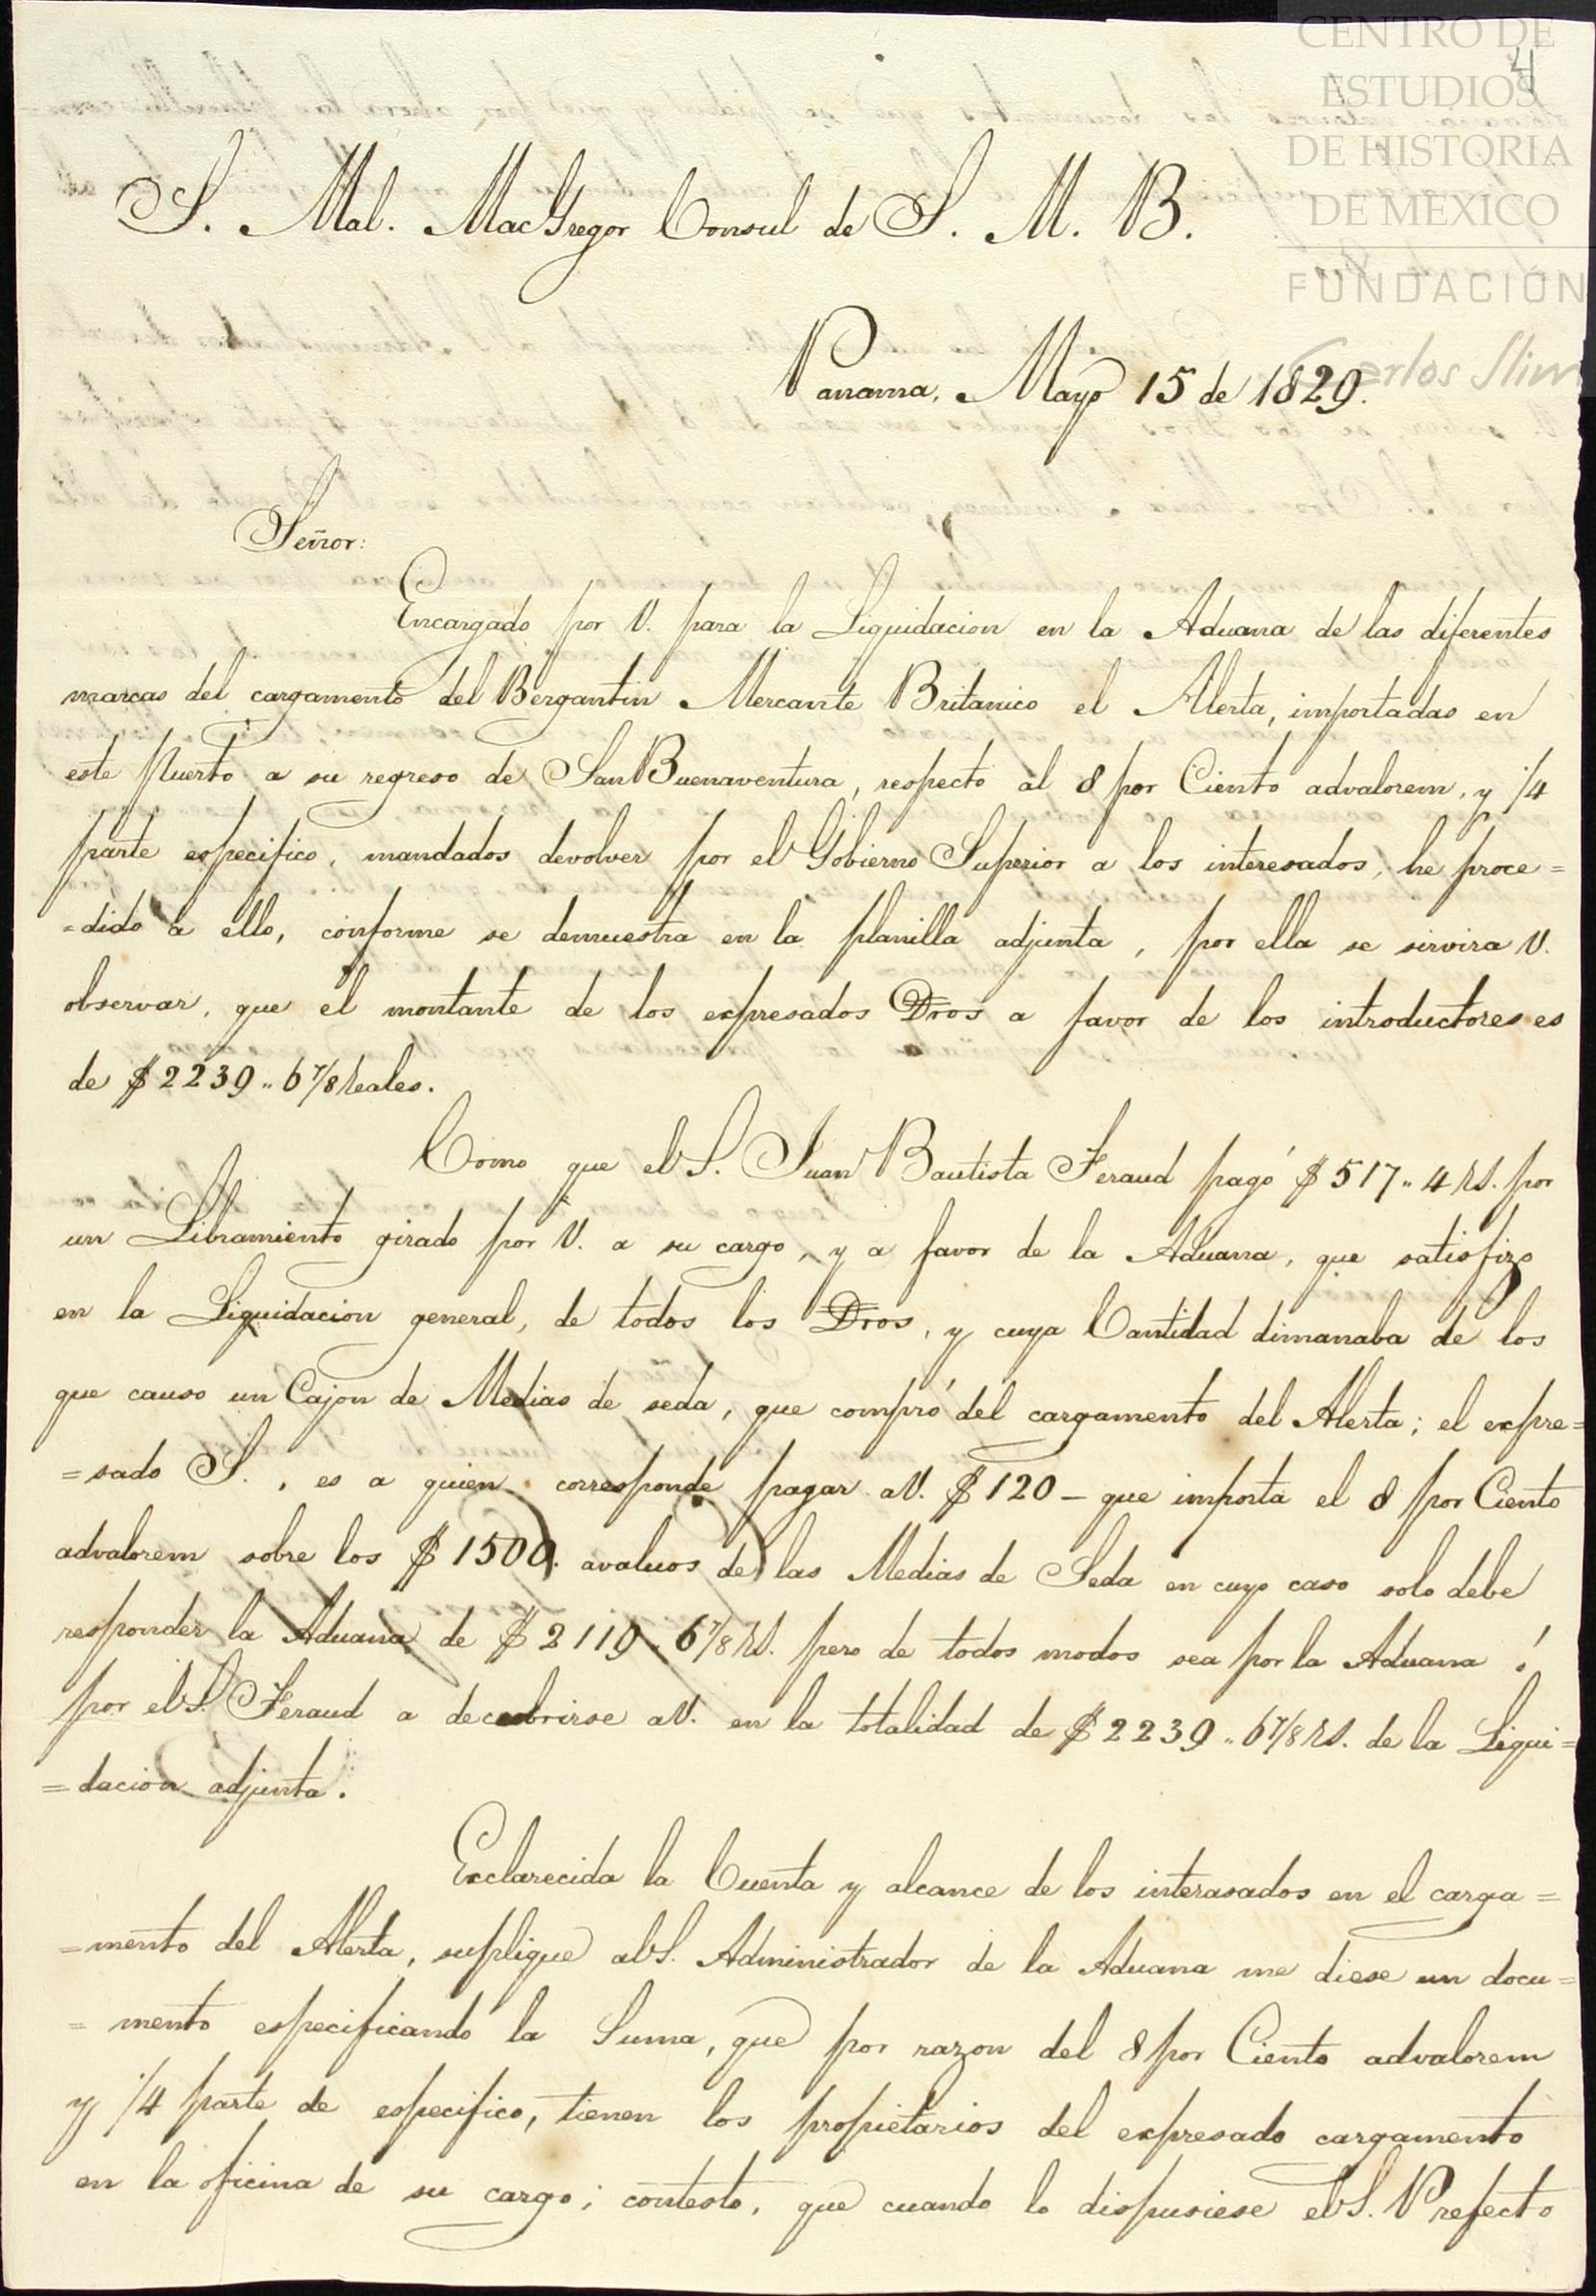 CENTRO DE
ESTUDIOS
DE HISTORIA
DE MEXICO
FUNDACIÓN
Carlos Slim
4
S. Mal. MacGregor Consul de S. M. B.
Panama, Mayo 15 de 1829.
Señor:
Encargado por V. para la Liquidacion en la Aduana de las diferentes
marcas del cargamento del Bergantin Mercante Britanico el Alerta, importadas en
este Puerto a su regreso de San Buenaventura, respecto al 8 por Ciento advalorem, y 1/4
parte especifico, mandados devolver por el Gobierno Superior a los interesados, he proce=
=dido a ello, conforme se demuestra en la planilla adjunta, por ella se sirvira V.
observar, que el montante de los expresados Dros a favor de los introductores es
de $2239,, 6 7/8 reales.
Como que el S. Juan Bautista Feraud pagó $517,, 4 Rs. por
un Libramiento girado por V. a su cargo, y a favor de la Aduana, que satisfizo
en la Liquidacion general, de todos los Dros, y cuya Cantidad dimanaba de los
que causo un Cajon de Medias de seda, que compró del cargamento del Alerta; el expre=
=sado S., es a quien corresponde pagar a V. $120 - que importa el 8 por Ciento
advalorem sobre los $1500. avaluos de las Medias de Seda en cuyo caso solo debe
responder la Aduana de $2119,, 6 7/8 Rs. pero de todos modos sea por la Aduana ó
por el S. Feraud a decubrirse a V. en la totalidad de $2239,, 6 7/8 Rs. de la Liqui=
=dacion adjunta.
Esclarecida la Cuenta y alcance de los interasados en el carga=
=mento del Alerta, suplique al S. Administrador de la Aduana me diese un docu=
=mento especificando la Suma, que por razon del 8 por Ciento advalorem
y 1/4 parte de especifico, tienen los propietarios del expresado cargamento
en la oficina de su cargo; contesto, que cuando lo dispusiese el S. Prefecto